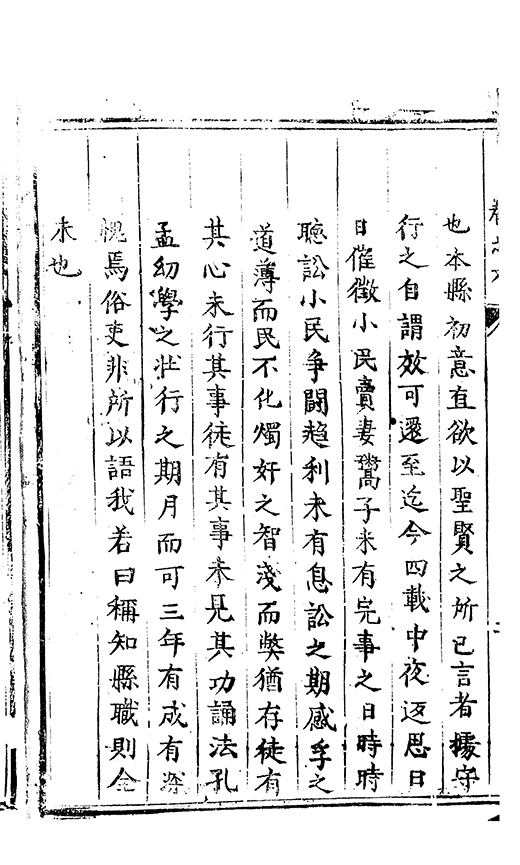 也本縣初意直欲以聖賢之所已言者據守
行之自謂效可還至迄今四載中夜返思日
日催徵小民賣妻鬻子未有完事之日時時
聽訟小民爭鬪趨利未有息訟之期感孚之
道薄而民不化燭奸之智淺而弊猶存徒有
其心未行其事徒有其事未見其功誦法孔
孟幼學之壯行之期月而可三年有成有深
愧焉俗吏非所以語我若曰稱知縣職則全
未也